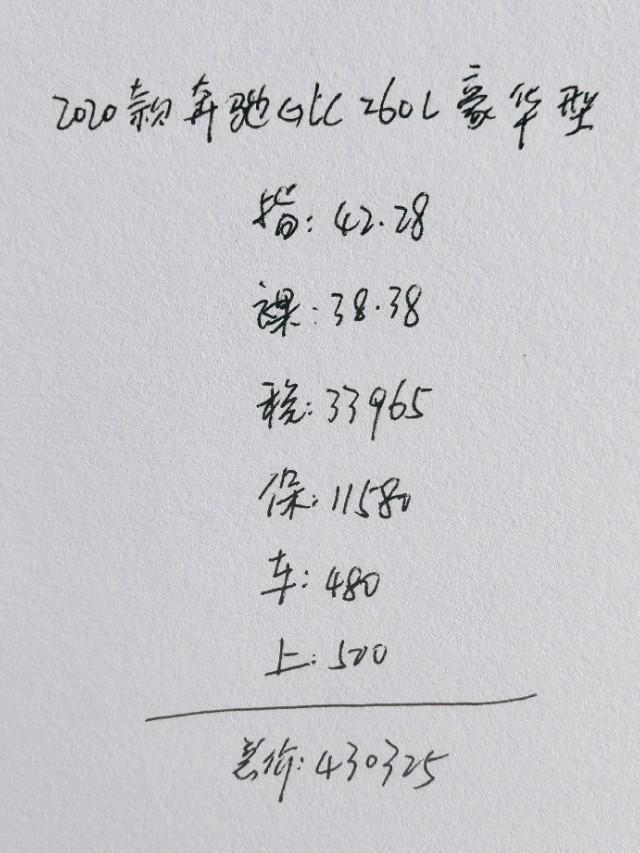 2020款奔驰GLC 260L豪华型
指:42.28
裸:38.38
税:33965
保:11580
车:480
上:500
总价:430325